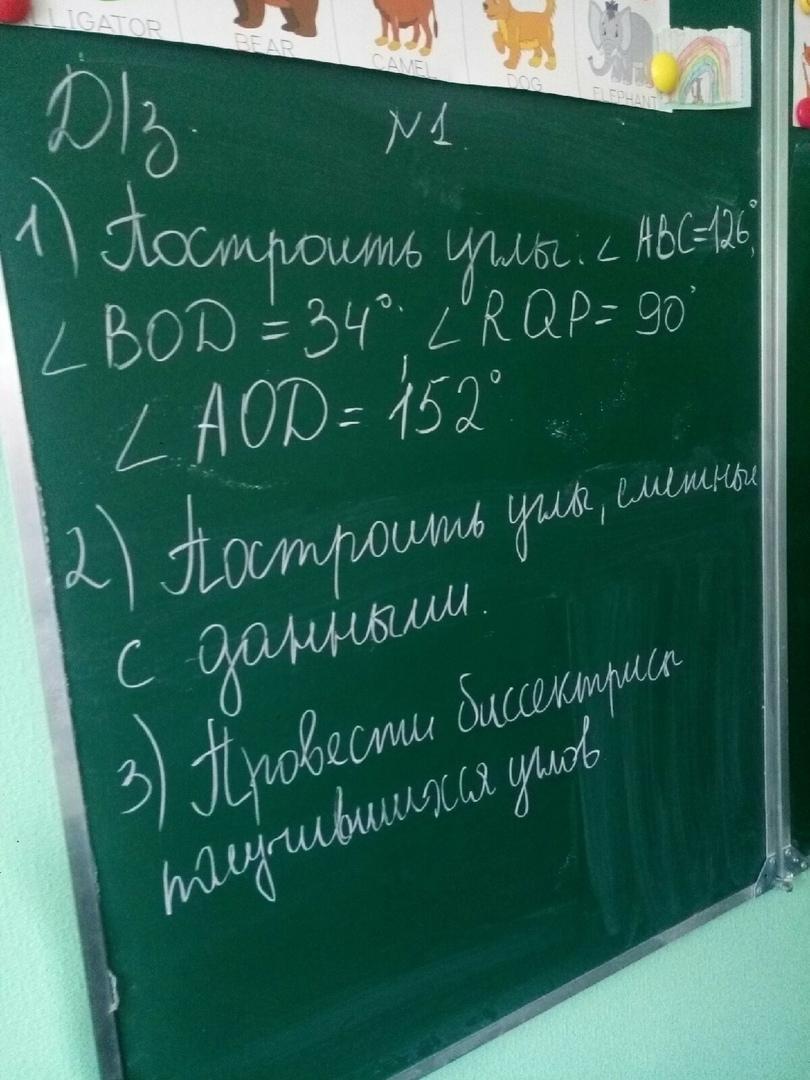 LLIGATOR
BEAR
CAMEL
DOG
ELEPHANT
Д/з. №1.
1) Построить углы: ∠ ABC=126°,
∠ BOD = 34°, ∠ RQP = 90°
∠ AOD = 152°
2) Построить углы, сметные
с данными.
3) Провести биссектрисы
получившихся углов